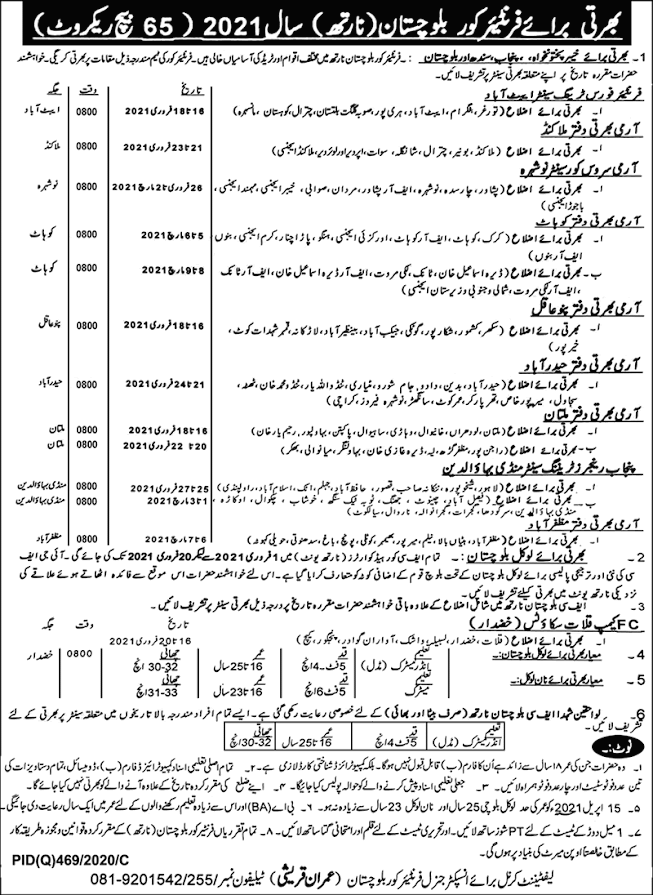 بھرتی برائے فرنٹیئر کور بلوچستان (نارتھ) سال 2021 ( 65 بیچ ریکروٹ)
1- بھرتی برائے خیبر پختونخواہ، پنجاب، سندھ اور بلوچستان :- فرنٹیئر کور بلوچستان نارتھ میں مختلف اقوام اور ٹریڈ کی آسامیاں خالی ہیں۔ فرنٹیئر کور کی ٹیم مندرجہ ذیل مقامات پر بھرتی کریگی۔ خواہشمند
حضرات مقررہ تاریخ پر اپنے متعلقہ بھرتی سینٹر پر تشریف لائیں۔
فرنٹیئر فورس ٹریننگ سینٹر ایبٹ آباد تاریخ وقت جگہ
ا۔ بھرتی برائے اضلاع (تورغر، بٹگرام، ایبٹ آباد، ہری پور، صوبہ گلگت بلتستان، چترال، کوہستان، مانسہرہ) 16 تا 18 فروری 2021 0800 ایبٹ آباد
آرمی بھرتی دفتر ملاکنڈ
ا۔ بھرتی برائے اضلاع (ملاکنڈ، بونیر، چترال، شانگلہ، سوات، اپر دیر اور لوئر دیر، ملاکنڈ ایجنسی) 21 تا 23 فروری 2021 0800 ملاکنڈ
آرمی سروس کور سینٹر نوشہرہ
ا۔ بھرتی برائے اضلاع (پشاور، چارسدہ، نوشہرہ، ایف آر پشاور، مردان، صوابی، خیبر ایجنسی، مہمند ایجنسی، 26 فروری تا 2 مارچ 2021 0800 نوشہرہ
باجوڑ ایجنسی)
آرمی بھرتی دفتر کوہاٹ
ا۔ بھرتی برائے اضلاع (کرک، کوہاٹ، ایف آر کوہاٹ، اورکزئی ایجنسی، ہنگو، پاڑا چنار، کرم ایجنسی، بنوں، 5 تا 6 مارچ 2021 0800 کوہاٹ
ایف آر بنوں)
ب۔ بھرتی برائے اضلاع (ڈیرہ اسماعیل خان، ٹانک، لکی مروت، ایف آر ڈیرہ اسماعیل خان، ایف آر ٹانک 8 تا 9 مارچ 2021 0800 کوہاٹ
، ایف آر لکی مروت، شمالی و جنوبی وزیرستان ایجنسی)
آرمی بھرتی دفتر پنو عاقل
ا۔ بھرتی برائے اضلاع (سکھر، کشمور، شکارپور، گھوٹکی، جیکب آباد، بینظیر آباد، لاڑکانہ، قمبر شہدادکوٹ، 16 تا 18 فروری 2021 0800 پنو عاقل
خیرپور)
آرمی بھرتی دفتر حیدرآباد
ا۔ بھرتی برائے اضلاع (حیدرآباد، بدین، دادو، جام شورو، مٹیاری، ٹنڈو اللہ یار، ٹنڈو محمد خان، ٹھٹھہ، 21 تا 24 فروری 2021 0800 حیدرآباد
سجاول، میرپور خاص، تھرپارکر، عمرکوٹ، سانگھڑ، نوشہرہ فیروز، کراچی)
آرمی بھرتی دفتر ملتان
ا۔ بھرتی برائے اضلاع (ملتان، لودھراں، خانیوال، وہاڑی، ساہیوال، پاکپتن، بہاولپور، رحیم یار خان) 16 تا 18 فروری 2021 0800 ملتان
ب۔ بھرتی برائے اضلاع (راجن پور، مظفر گڑھ، لیہ، ڈیرہ غازی خان، بہاولنگر، میانوالی، بھکر) 20 تا 22 فروری 2021 0800 ملتان
پنجاب رینجرز ٹریننگ سینٹر منڈی بہاؤالدین
ا۔ بھرتی برائے اضلاع (لاہور، شیخوپورہ، ننکانہ صاحب، قصور، حافظ آباد، جہلم، اٹک، اسلام آباد، راولپنڈی) 25 تا 27 فروری 2021 0800 منڈی بہاؤالدین
ب۔ بھرتی برائے اضلاع (فیصل آباد، چنیوٹ، جھنگ، ٹوبہ ٹیک سنگھ، خوشاب، چکوال، اوکاڑہ، 1 تا 3 مارچ 2021 0800 منڈی بہاؤالدین
منڈی بہاؤالدین، سرگودھا، گجرات، گوجرانوالہ، نارووال، سیالکوٹ)
آرمی بھرتی دفتر مظفر آباد
ا۔ بھرتی برائے اضلاع (مظفر آباد، ہٹیاں بالا، نیلم، میرپور، بھمبر، کوٹلی، پونچھ، باغ، سدھنوتی، حویلی کہوٹہ) 6 تا 7 مارچ 2021 0800 مظفر آباد
2- بھرتی برائے لوکل بلوچستان :- تمام ایف سی کور ہیڈ کوارٹرز (نارتھ یونٹ) میں 1 فروری 2021 سے لیکر 20 فروری 2021 تک کی جائے گی۔ آئی جی ایف
سی کی نئی اور ترجیحی پالیسی برائے لوکل بلوچستان کے تحت بلوچ قوم کے اضافی کوٹہ کو متعارف کرایا گیا ہے۔ اس لئے خواہشمند حضرات اس موقع سے فائدہ اٹھاتے ہوئے علاقے کی
نزدیکی نارتھ یونٹ میں بھرتی کیلئے تشریف لائیں۔
3- ایف سی بلوچستان نارتھ میں شامل اضلاع کے علاوہ باقی خواہشمند حضرات مقررہ تاریخ پر درجہ ذیل بھرتی سینٹر پر تشریف لائیں۔
FC کیمپ قلات سکاؤٹس (خضدار) تاریخ وقت جگہ
ا۔ بھرتی برائے اضلاع (قلات، خضدار، لسبیلہ، واشک، آواران، گوادر، پنجگور، کیچ) 16 تا 20 فروری 2021 0800 خضدار
4- معیار بھرتی برائے لوکل بلوچستان :- تعلیم انڈر میٹرک (مڈل) قد 5 فٹ 4 انچ عمر 16 تا 25 سال چھاتی 30-32 انچ
5- معیار بھرتی برائے نان لوکل :- تعلیم میٹرک قد 5 فٹ 6 انچ عمر 16 تا 23 سال چھاتی 31-33 انچ
6- لواحقین شہدا ایف سی بلوچستان نارتھ (صرف بیٹا اور بھائی) کے لئے خصوصی رعایت رکھی گئی ہے۔ ایسے تمام افراد مندرجہ بالا تاریخوں میں متعلقہ سینٹر پر بھرتی کے لئے
تشریف لائیں۔ تعلیم انڈر میٹرک (مڈل) قد 5 فٹ 4 انچ عمر 16 تا 25 سال چھاتی 30-32 انچ
نوٹ:-
1- وہ حضرات جن کی عمر 18 سال سے زائد ہے اُن کا فارم (ب) قابل قبول نہیں ہوگا۔ بلکہ کمپیوٹرائزڈ شناختی کارڈ لازمی ہے۔ 2- تمام اصلی تعلیمی اسناد کمپیوٹرائزڈ فارم (ب)، ڈومیسائل، تمام دستاویزات کی
تین عدد فوٹوسٹیٹ اور چار عدد فوٹو ہمراہ لائیں۔ 3- جعلی تعلیمی اسناد پیش کرنے والے کو حوالہ پولیس کیا جائے گا۔ 4- اپنے ضلع کی مقررہ تاریخ کے علاوہ آنے والے کو بھرتی نہیں کیا جائے گا۔
5- 15 اپریل 2021 کو عمر کی حد لوکل بلوچی 25 سال اور نان لوکل 23 سال سے زیادہ نہ ہو۔ 6- بی اے (BA) اور اس سے زیادہ تعلیم رکھنے والوں کے لئے عمر میں ایک سال رعایت دی جائیگی۔
7- 1 میل دوڑ کے ٹیسٹ کے لئے PT شوز ساتھ لائیں اور تحریری ٹیسٹ کے لئے قلم اور امتحانی گتا ساتھ لائیں۔ 8- تمام تقرریاں فرنٹیئر کور بلوچستان (نارتھ) کے مقرر کردہ قوانین و مجوزہ طریقہ کار
کے مطابق خالصتاً اوپن میرٹ کی بنیاد پر ہوں گی۔
PID(Q)469/2020/C
لیفٹیننٹ کرنل برائے انسپکٹر جنرل فرنٹیئر کور بلوچستان (عمران قریشی) ٹیلیفون نمبر/255/081-9201542